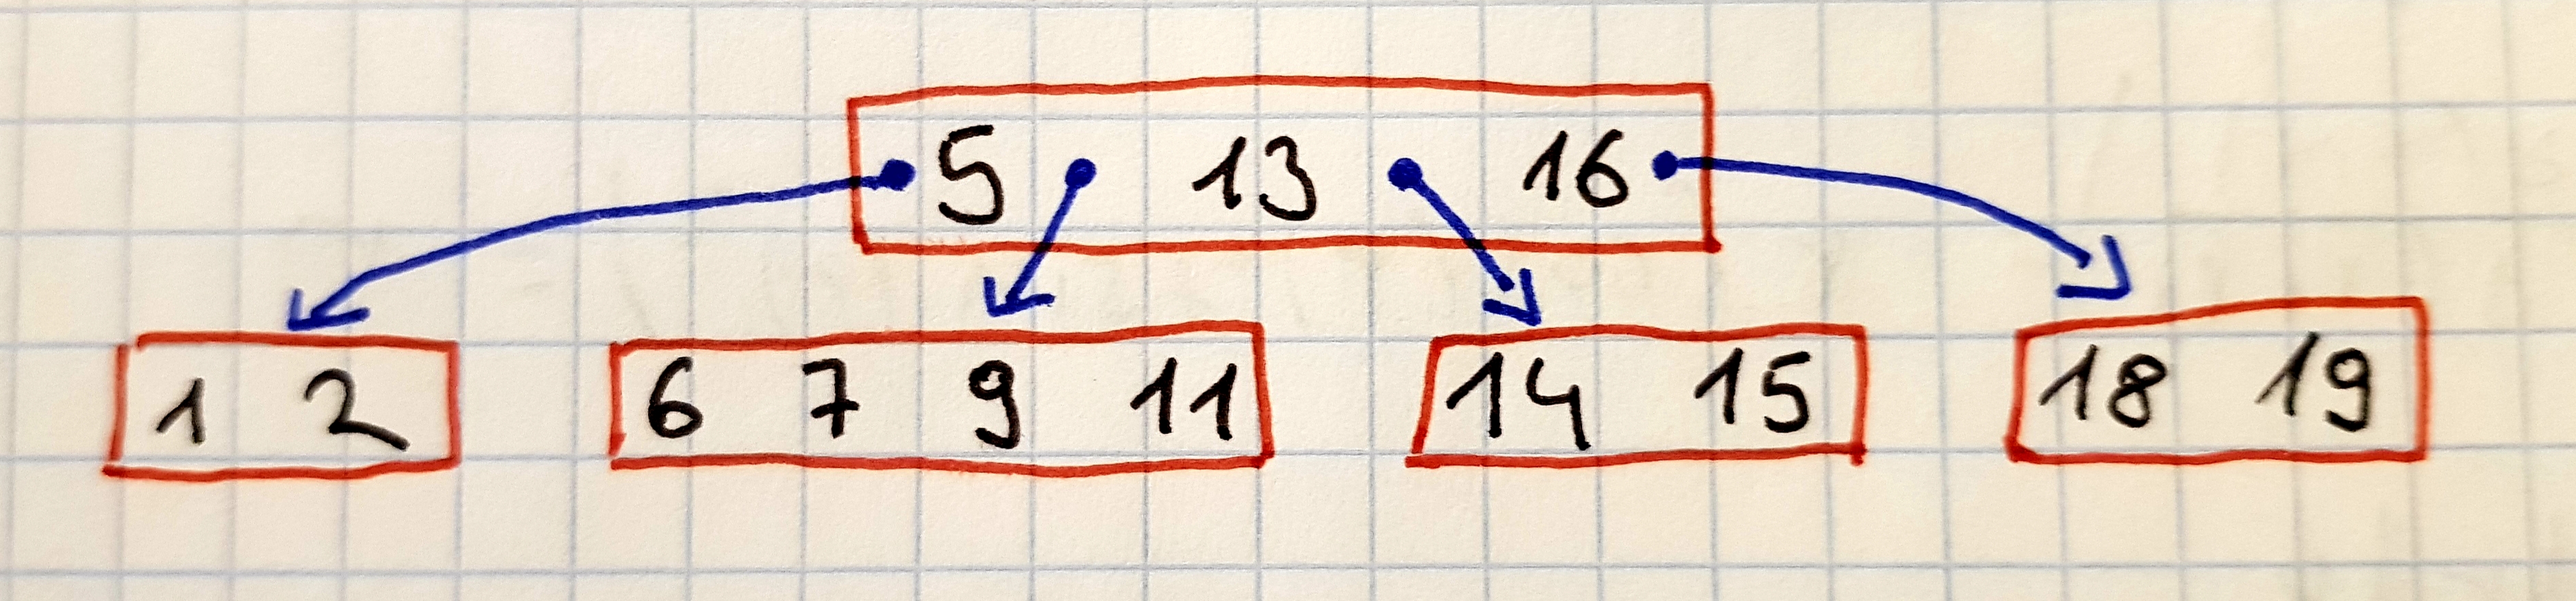 5 13 16
1 2 6 7 9 11 14 15 18 19